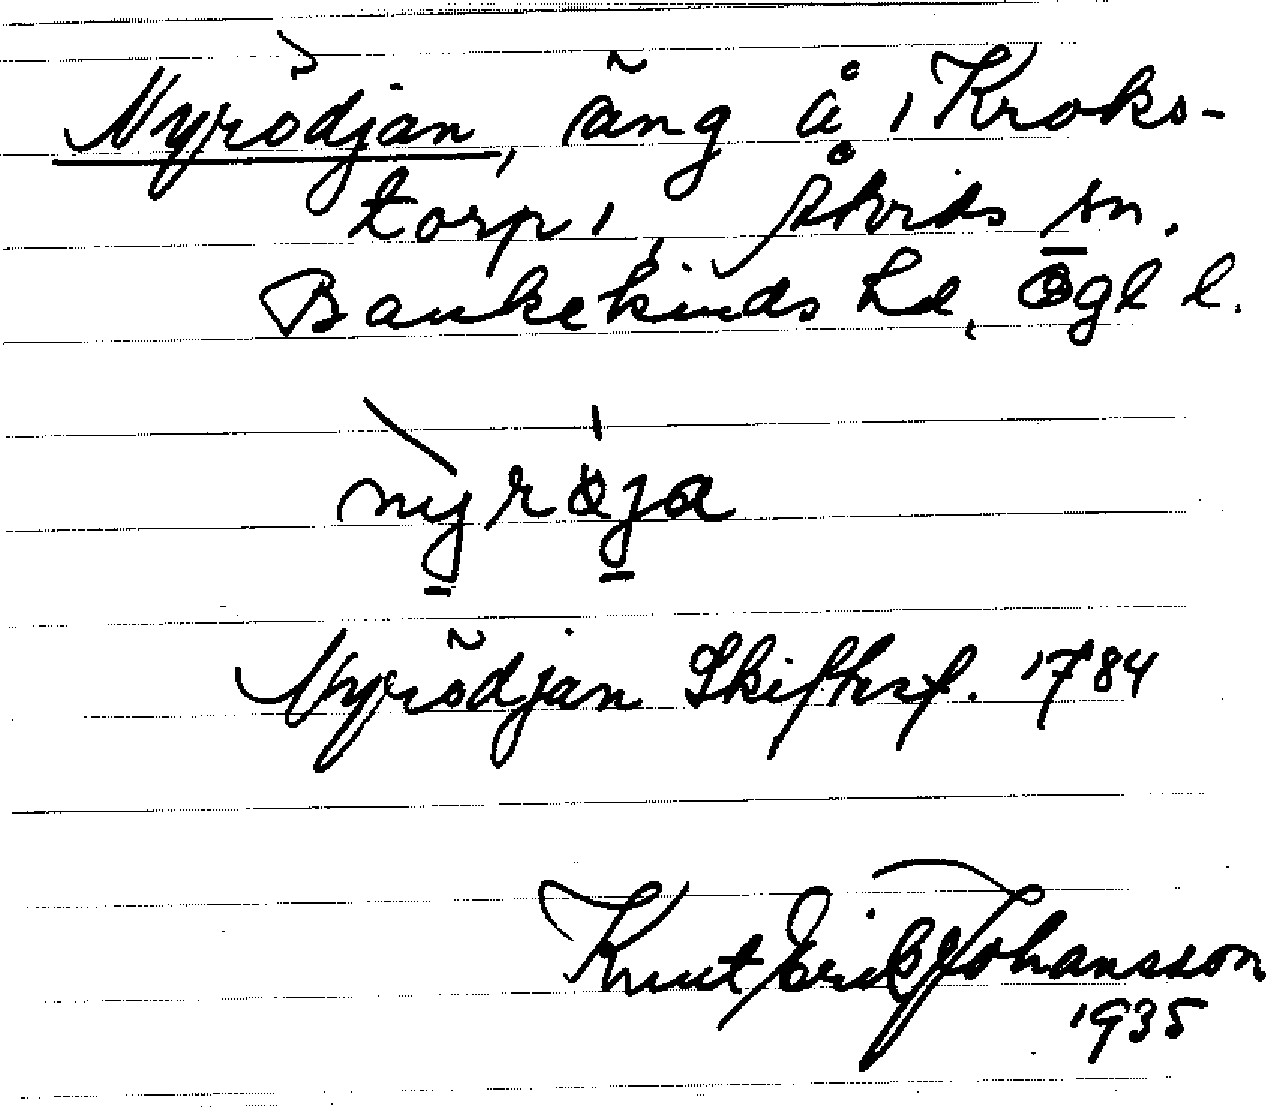 Nyrödjan, äng å 1 Kroks-
torp 1, Åtvids sn.
Bankekinds hd, Ögl l.
nỳrö́ja
Nyrödjan Skiftesf. 1784
Knut Erik Johansson
1935